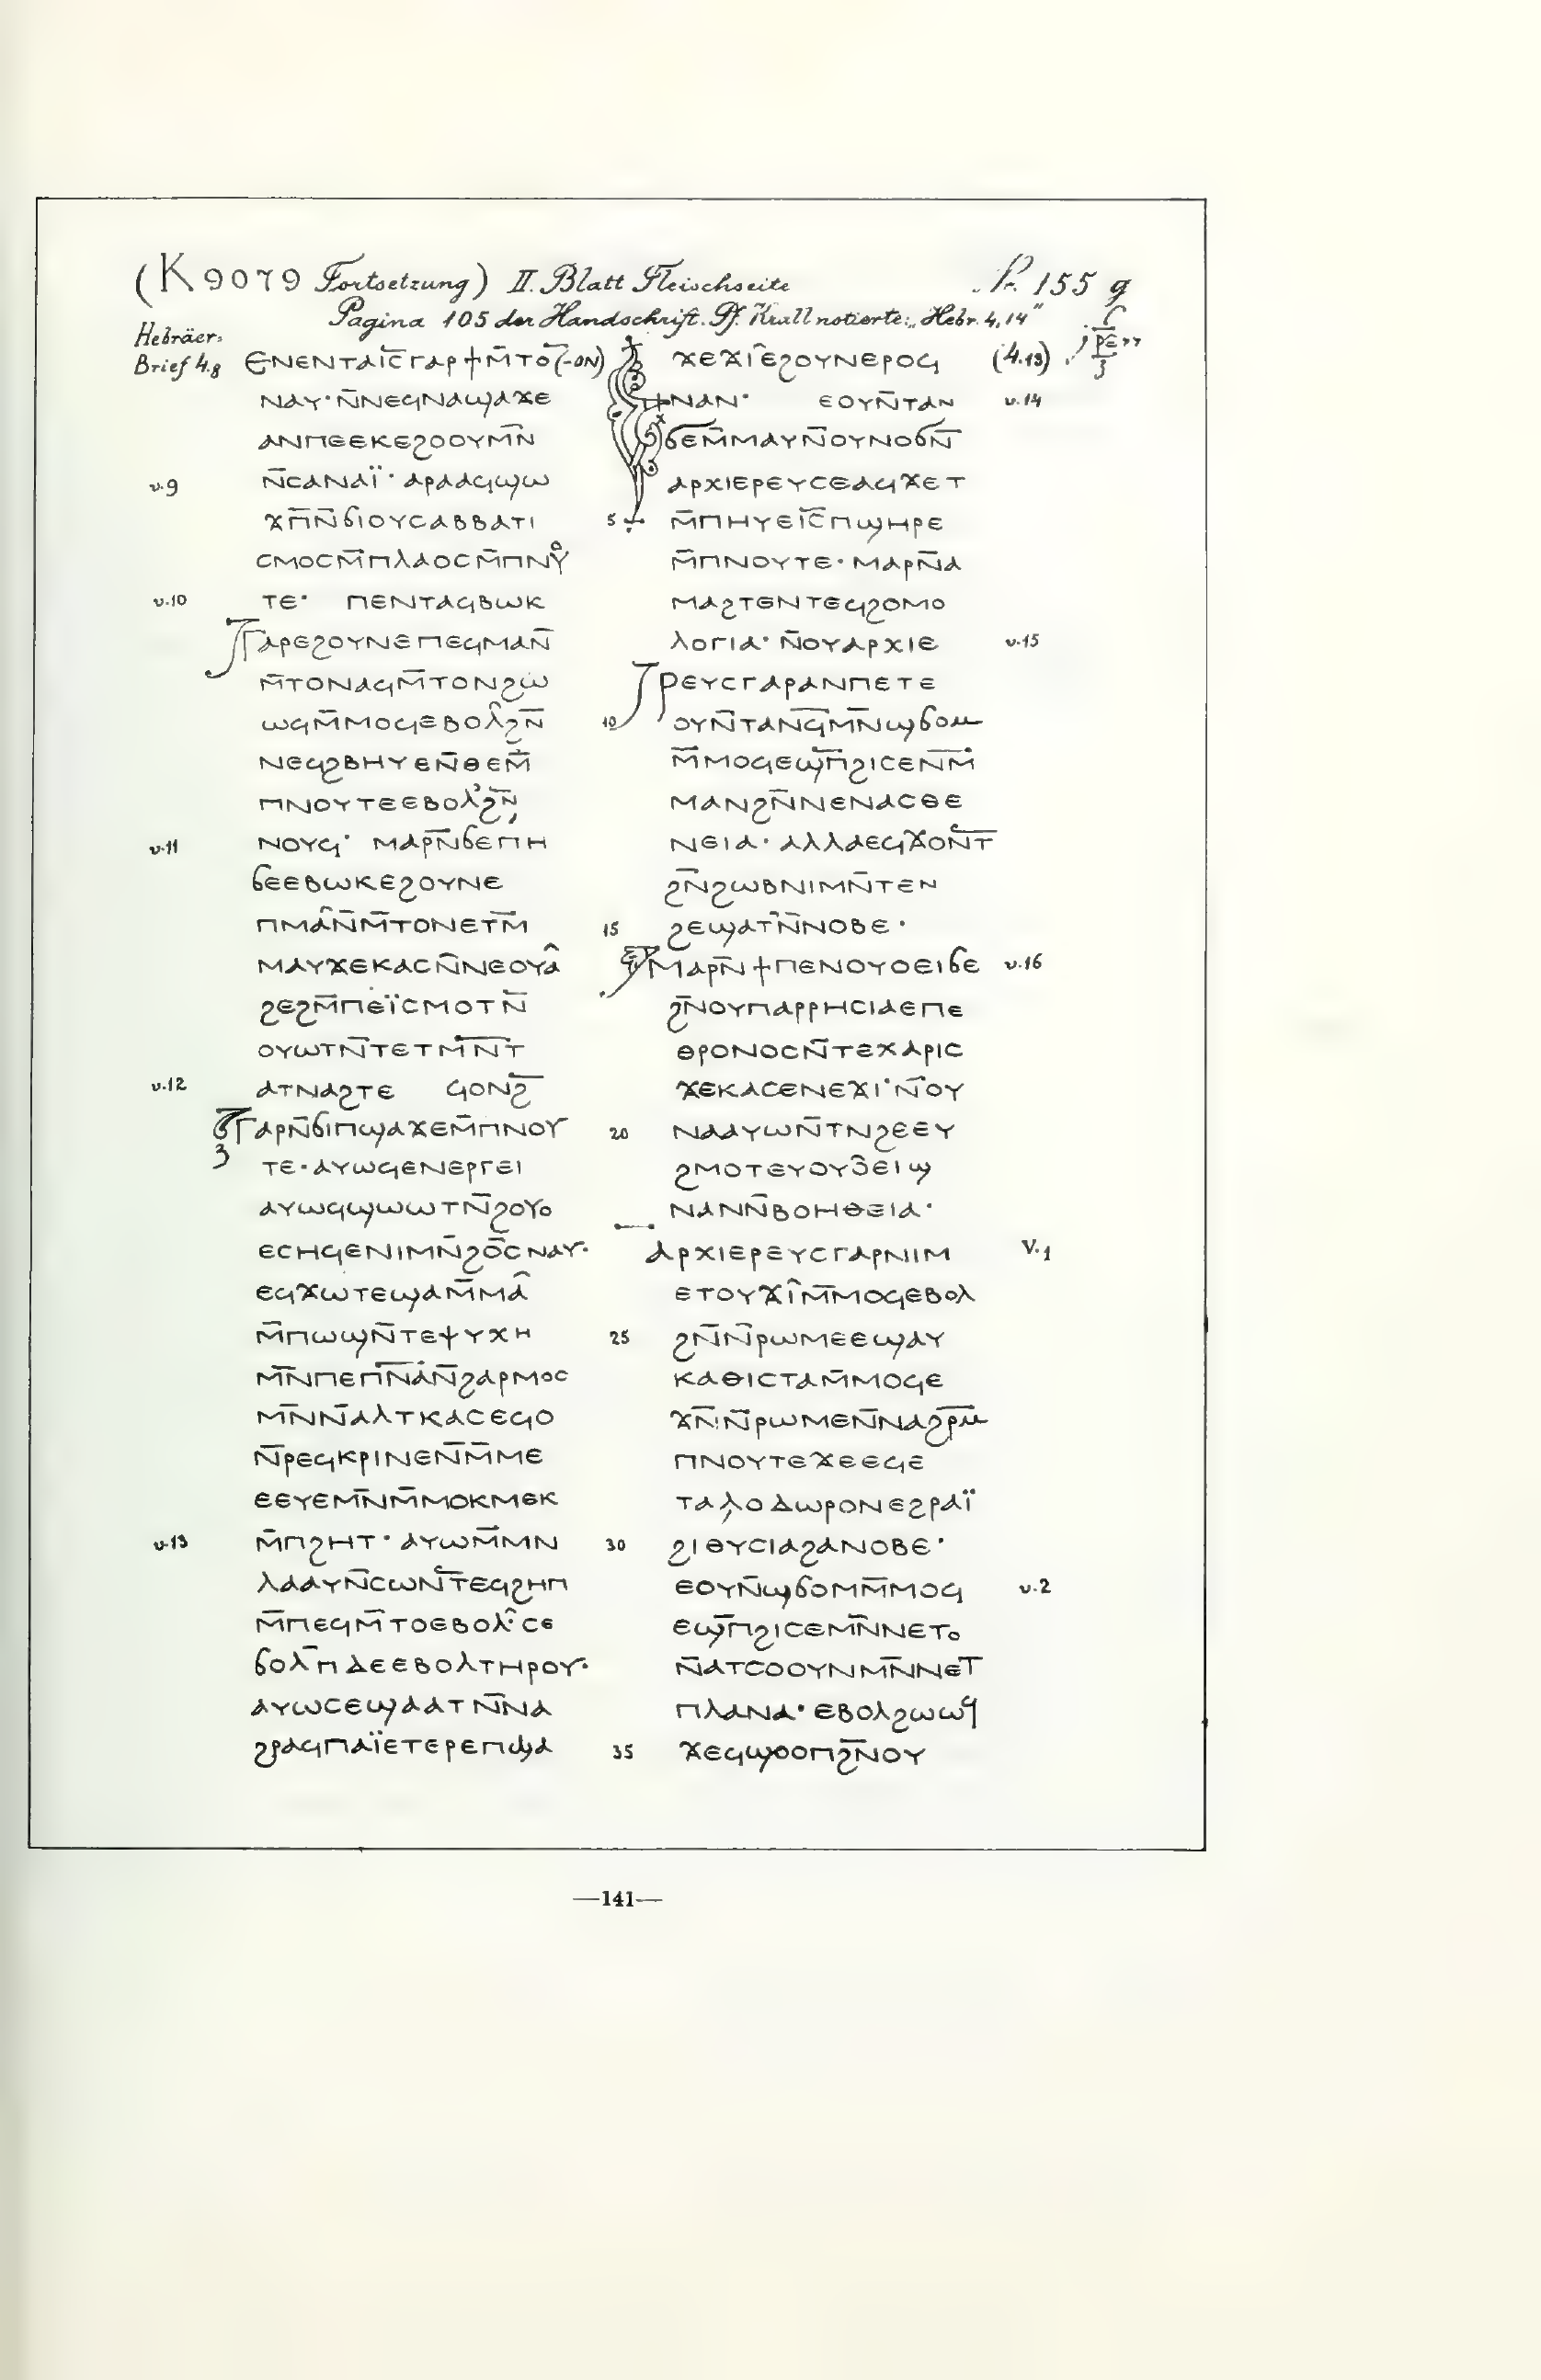 (K 9079 Fortsetzung) II. Blatt Fleischseite Pr. 155 g
Pagina 105 der Handschrift. Pf. Krall notierte: „Hebr. 4,14"
Hebräer-
Brief 4.8 ⲈⲚⲈⲚⲦⲀⲒ̅Ⲥ̅ⲄⲀⲢϮⲘ̅ⲦⲞ̅(-ⲞⲚ)
ⲚⲀⲨ·Ⲛ̅ⲚⲈϤⲚⲀϢⲀϪⲈ
ⲀⲚⲠⲈⲈⲔⲈϨⲞⲞⲨⲘⲚ̅
v.9 Ⲛ̅ⲤⲀⲚⲀΪ·ⲀⲢⲀⲀϤϢⲰ
ϪⲠ̅Ⲛ̅ϬⲒⲞⲨⲤⲀⲂⲂⲀⲦⲒ
ⲤⲘⲞⲤⲘ̅ⲠⲖⲀⲞⲤⲘ̅ⲠⲚⲞⲨ
v.10 ⲦⲈ· ⲠⲈⲚⲦⲀϤⲂⲰⲔ
ⲄⲀⲢⲈϨⲞⲨⲚⲈⲠⲈϤⲘⲀⲚ̅
Ⲙ̅ⲦⲞⲚⲀϤⲘ̅ⲦⲞⲚϨⲰ
ⲰϤⲘ̅ⲘⲞϤⲈⲂⲞⲖϨⲚ̅
ⲚⲈϤϨⲂⲎⲨⲈⲚ̅ⲐⲈⲘ̅
ⲠⲚⲞⲨⲦⲈⲈⲂⲞⲖϨⲚ̅
v.11 ⲚⲞⲨϤ· ⲘⲀⲢⲚ̅ϬⲈⲠⲎ
ϬⲈⲈⲂⲰⲔⲈϨⲞⲨⲚⲈ
ⲠⲘⲀ̂Ⲛ̅Ⲙ̅ⲦⲞⲚⲈⲦⲘ̅
ⲘⲀⲨϪⲈⲔⲀⲤⲚ̅ⲚⲈⲞⲨⲀ̂
ϨⲈϨⲘ̅ⲠⲈΪⲤⲘⲞⲦⲚ̅
ⲞⲨⲰⲦⲚ̅ⲦⲈⲦⲘ̅Ⲛ̅Ⲧ̅
v.12 ⲀⲦⲚⲀϨⲦⲈ ϤⲞⲚϨ̅
ⲄⲀⲢⲚ̅ϬⲒⲠϢⲀϪⲈⲘ̅ⲠⲚⲞⲨ
ⲦⲈ·ⲀⲨⲰϤⲈⲚⲈⲢⲄⲈⲒ
ⲀⲨⲰϤϢⲰⲰⲦⲚ̅ϨⲞⲨⲞ
ⲈⲤⲎϤⲈⲚⲒⲘⲚ̅ϨⲞ̅ⲤⲚⲀⲨ·
ⲈϤϪⲰⲦⲈϢⲀⲘ̅ⲘⲀ̂
Ⲙ̅ⲠⲰϢⲚ̅ⲦⲈⲮⲨⲬⲎ
Ⲙ̅Ⲛ̅ⲠⲈⲠ̅Ⲛ̅Ⲁ̅Ⲛ̅ϨⲀⲢⲘⲞⲤ
Ⲙ̅ⲚⲚ̅ⲀⲖⲦⲔⲀⲤⲈϤⲞ
Ⲛ̅ⲢⲈϤⲔⲢⲒⲚⲈⲚ̅Ⲙ̅ⲘⲈ
ⲈⲈⲨⲈⲘ̅ⲚⲘ̅ⲘⲞⲔⲘⲈⲔ
v.13 Ⲙ̅ⲠϨⲎⲦ·ⲀⲨⲰⲘ̅ⲘⲚ
ⲖⲀⲀⲨⲚ̅ⲤⲰⲚ̅ⲦⲈϤϨⲎⲠ
Ⲙ̅ⲠⲈϤⲘ̅ⲦⲞⲈⲂⲞⲖ·ⲤⲈ
ϬⲞⲖⲠ̅ⲆⲈⲈⲂⲞⲖⲦⲎⲢⲞⲨ·
ⲀⲨⲰⲤⲈϢⲀⲀⲦⲚ̅ⲚⲀ
ϨⲢⲀϤⲠⲀΪⲈⲦⲈⲢⲈⲠϢⲀ
ϪⲈϪⲒ̂ⲈϨⲞⲨⲚⲈⲢⲞϤ (4.13) „ⲢⲈ̅"
ⲚⲀⲚ· ⲈⲞⲨⲚ̅ⲦⲀⲚ v.14
ϬⲈⲘ̅ⲘⲀⲨⲚ̅ⲞⲨⲚⲞϬⲚ̅
ⲀⲢⲬⲒⲈⲢⲈⲨⲤⲈⲀϤϪⲈⲦ
5 Ⲙ̅ⲠⲎⲨⲈⲒ̅Ⲥ̅ⲠϢⲎⲢⲈ
Ⲙ̅ⲠⲚⲞⲨⲦⲈ·ⲘⲀⲢⲚ̅Ⲁ
ⲘⲀϨⲦⲈⲚⲦⲈϤϨⲞⲘⲞ
ⲖⲞⲄⲒⲀ·Ⲛ̅ⲞⲨⲀⲢⲬⲒⲈ v.15
ⲢⲈⲨⲤⲄⲀⲢⲀⲚⲠⲈⲦⲈ
10 ⲞⲨⲚ̅ⲦⲀⲚϤ̅Ⲙ̅ⲚϢϬⲞⲘ
Ⲙ̅ⲘⲞϤⲈϢⲠ̅ϨⲒⲤⲈⲚ̅Ⲙ̅
ⲘⲀⲚϨⲚ̅ⲚⲈⲚⲀⲤⲐⲈ
ⲚⲈⲒⲀ·ⲀⲖⲖⲀⲈϤϪⲞⲚ̅Ⲧ̅
ϨⲚ̅ϨⲰⲂⲚⲒⲘⲚ̅ⲦⲈⲚ
15 ϨⲈϢⲀⲦⲚ̅ⲚⲞⲂⲈ·
ⲘⲀⲢⲚ̅ϮⲠⲈⲚⲞⲨⲞⲈⲒϬⲈ v.16
ϨⲚ̅ⲞⲨⲠⲀⲢⲢⲎⲤⲒⲀⲈⲠⲈ
ⲐⲢⲞⲚⲞⲤⲚ̅ⲦⲈⲬⲀⲢⲒⲤ
ϪⲈⲔⲀⲤⲈⲚⲈϪⲒ·Ⲛ̅ⲞⲨ
20 ⲚⲀⲀⲨⲰⲚ̅ⲦⲚϨⲈⲈⲨ
ϨⲘⲞⲦⲈⲨⲞⲨⲞ̂ⲈⲒϢ
ⲚⲀⲚⲚ̅ⲂⲞⲎⲐⲈⲒⲀ·
ⲀⲢⲬⲒⲈⲢⲈⲨⲤⲄⲀⲢⲚⲒⲒⲘ V.1
ⲈⲦⲞⲨϪⲒ̂Ⲙ̅ⲘⲞϤⲈⲂⲞⲖ
25 ϨⲚ̅Ⲛ̅ⲢⲰⲘⲈⲈϢⲀⲨ
ⲔⲀⲐⲒⲤⲦⲀⲘ̅ⲘⲞϤⲈ
ϪⲚ̅Ⲛ̅ⲢⲰⲘⲈⲚ̅ⲚⲀϨⲢⲘ̅
ⲠⲚⲞⲨⲦⲈϪⲈⲈϤⲈ
ⲦⲀⲖⲞⲆⲰⲢⲞⲚⲈϨⲢⲀΪ
30 ϨⲒⲐⲨⲤⲒⲀϨⲀⲚⲞⲂⲈ·
ⲈⲞⲨⲚ̅ϢϬⲞⲘⲘ̅ⲘⲞϤ v.2
ⲈϢⲠ̅ϨⲒⲤⲈⲘ̅ⲚⲚⲈⲦⲞ
Ⲛ̅ⲀⲦⲤⲞⲞⲨⲚⲘ̅ⲚⲚⲈⲦ
ⲠⲖⲀⲚⲀ·ⲈⲂⲞⲖϨⲰⲰϤ
35 ϪⲈϤϢⲞⲞⲠϨⲚ̅ⲞⲨ
—141—